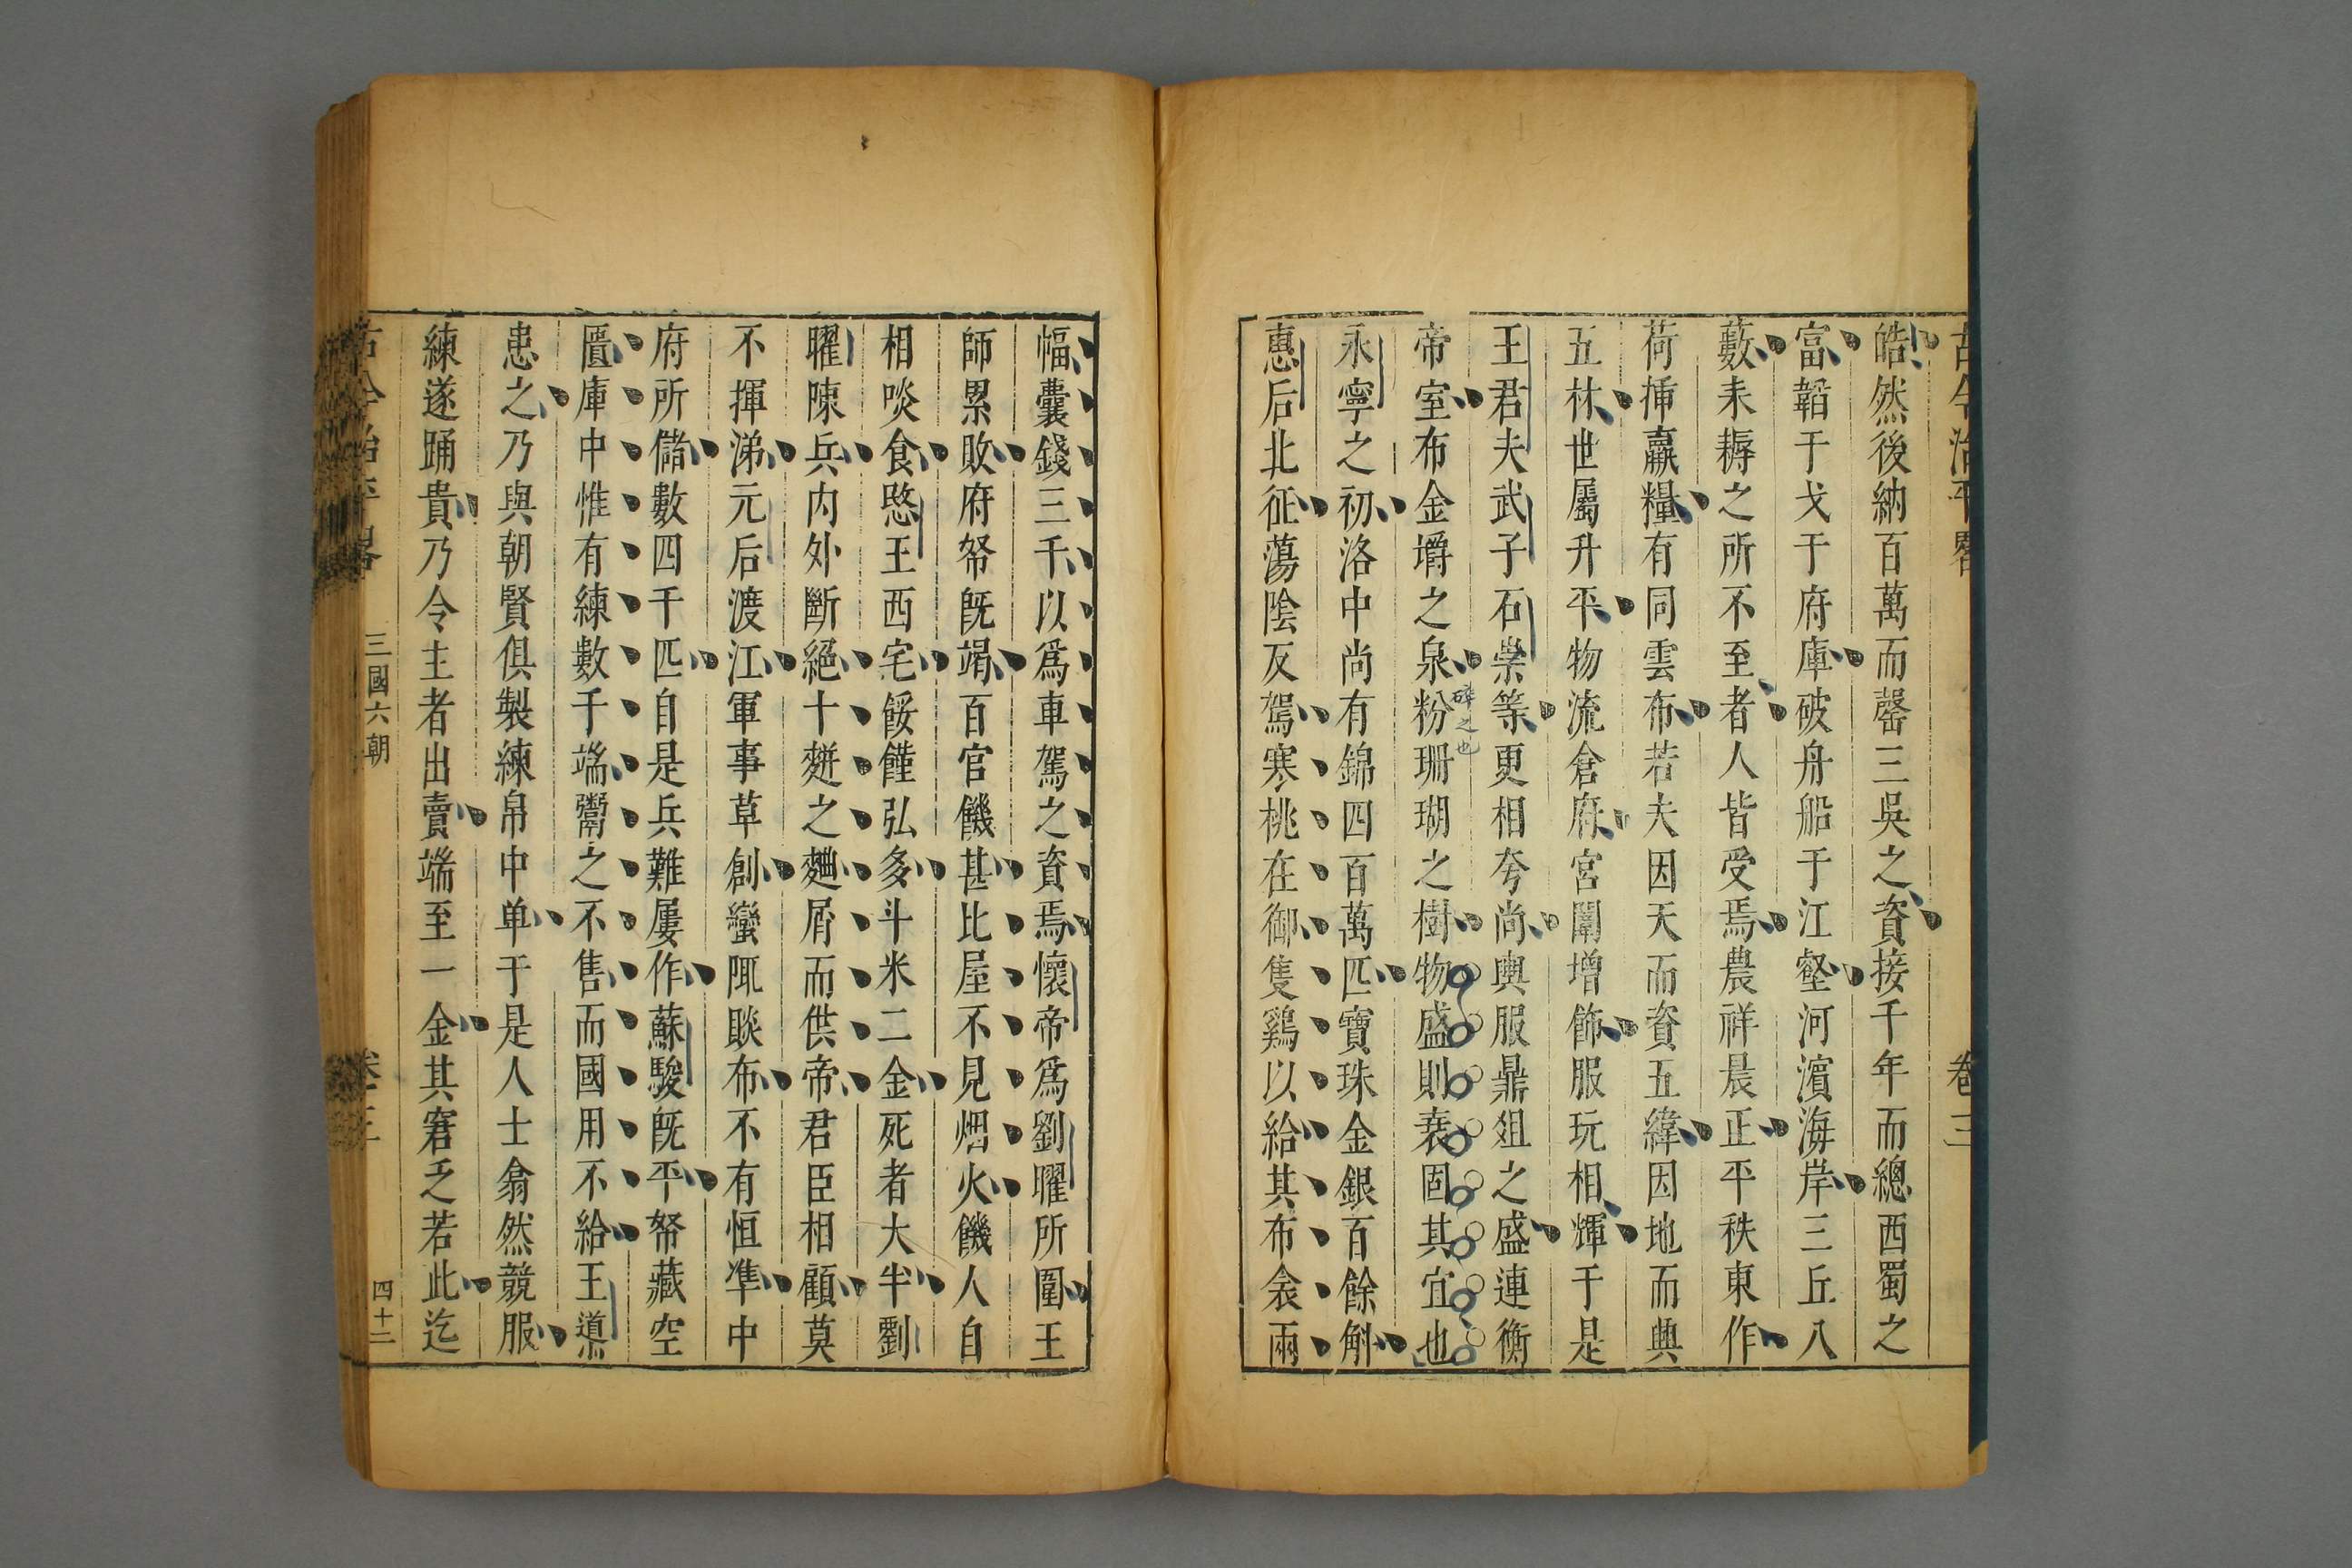 古今治平畧 卷三
皓然後納百萬而罄三吳之資接千年而總西蜀之
富韜于戈于府庫破舟船于江壑河濱海岸三丘八
藪耒耨之所不至者人皆受焉農祥晨正平秩東作
荷挿贏糧有同雲布若夫因天而資五緯因地而興
五材世屬升平物流倉府宮闈增飾服玩相輝于是
王君夫武子石崇等更相夸尚輿服鼎俎之盛連衡
帝室布金埒之泉粉珊瑚之樹物盛則衰固其宜也
碎之也
永寧之初洛中尚有錦四百萬匹寶珠金銀百餘斛
惠后北征蕩陰反駕寒桃在御隻鷄以給其布衾兩
幅囊錢三千以爲車駕之資焉懷帝爲劉曜所圍王
師累敗府帑旣竭百官饑甚比屋不見烟火饑人自
相啖食愍王西宅餒饉弘多斗米二金死者大半劉
曜陳兵内外斷絕十𪌘之麯屑而供帝君臣相顧莫
不揮涕元后渡江軍事草創蠻陬賧布不有恒準中
府所儲數四千匹自是兵難屢作蘇駿旣平帑藏空
匱庫中惟有練數千端鬻之不售而國用不給王導
患之乃與朝賢俱製練帛中单于是人士翕然競服
練遂踊貴乃令主者出賣端至一金其窘乏若此迄
古今治平畧 三國六朝 卷三 四十二